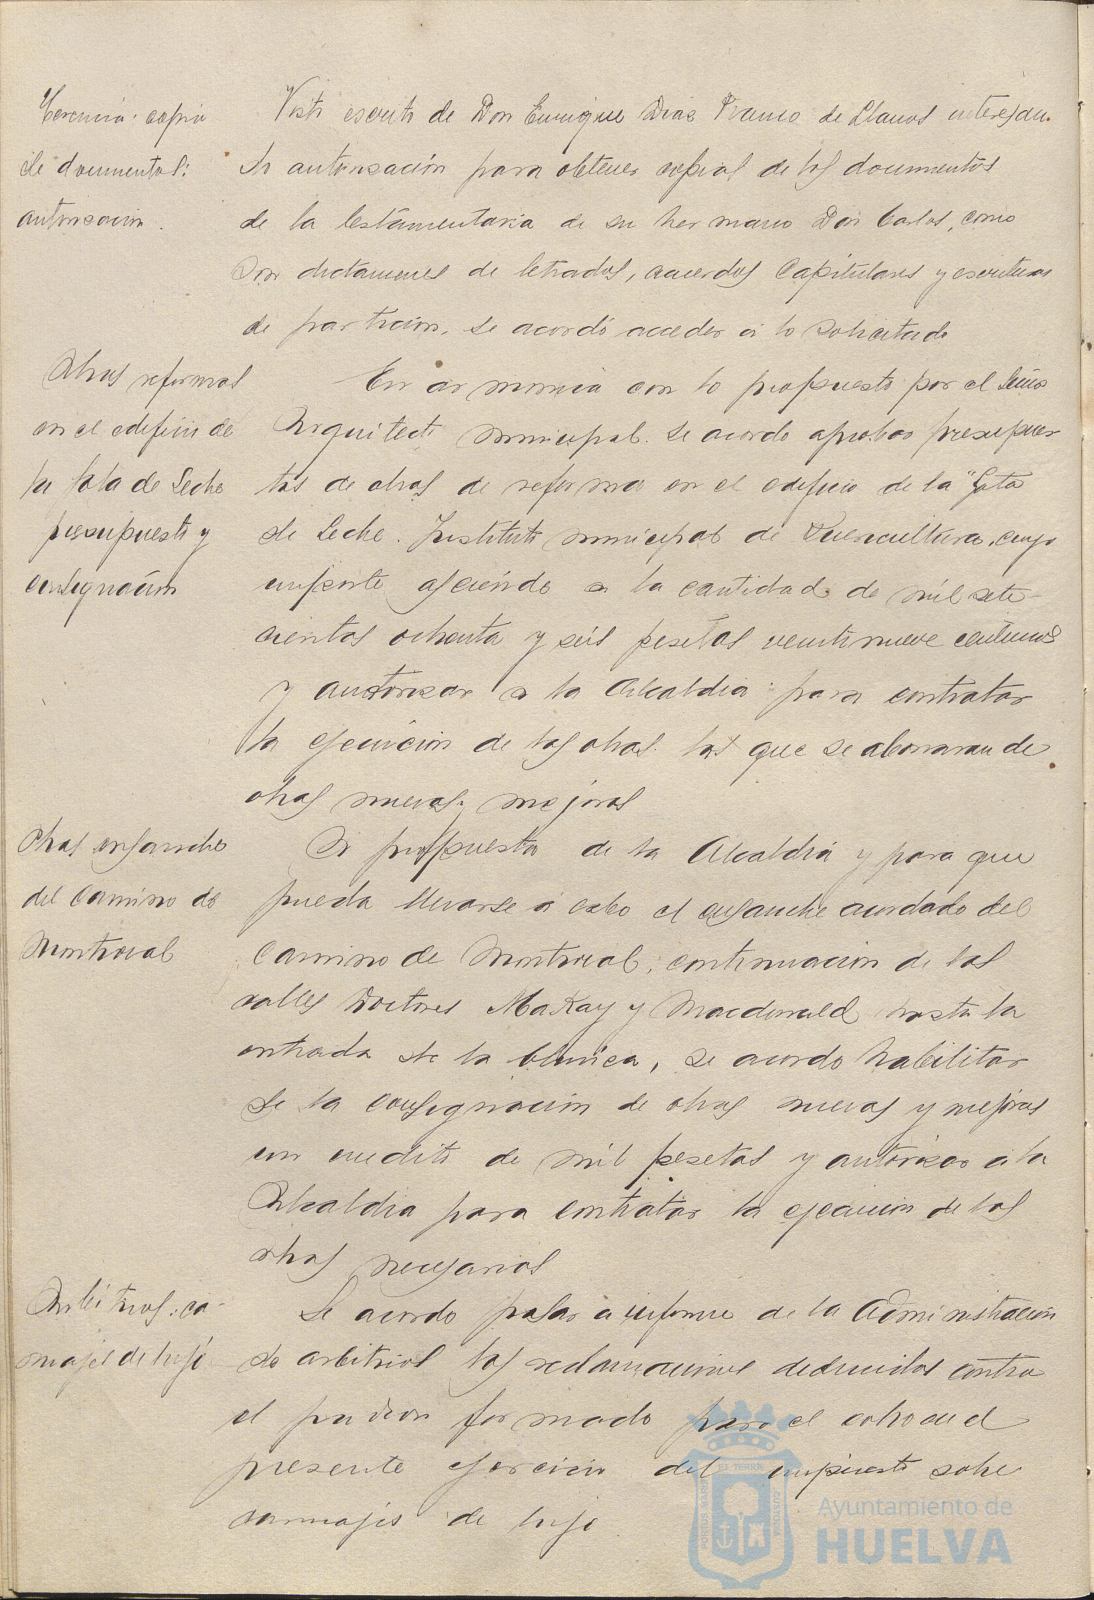 Herencia: copia
de documentos:
autorización.
Visto escrito de Don Enrique Díaz Franco de Llanos interesan-
do autorización para obtener copias de los documentos
de la testamentaria de su hermano Don Carlos, como
son dictamenes de letrados, acuerdos Capitulares y escrituras
de partición, se acordó acceder a lo solicitado
Obras reformas
en el edificio de
la Gota de Leche
presupuesto y
consignación
En armonia con lo propuesto por el Señor
Arquitecto municipal. se acordo aprobar presupues-
tos de obras de reforma en el edificio de la "Gota
de Leche. Instituto municipal de Puericultura, cuyo
importe asciende a la cantidad de mil sete-
cientas ochenta y seis pesetas veintinueve centimos
y autorizar a la Alcaldia para contratar
la ejecución de las obras las que se abonaran de
obras nuevas y mejoras
Obras ensanche
del Camino de
Montrocal
A propuesta de la Alcaldia y para que
pueda llevarse a cabo el ensanche acordado del
Camino de Montrocal, continuación de las
calles Doctores MaKay y Macdonald hasta la
entrada de la Clinica, se acordo habilitar
de la consignación de obras nuevas y mejoras
un credito de mil pesetas y autorizar a la
Alcaldia para contratar la ejecución de las
obras necesarias
Arbitrios: ca-
rruajes de lujo
Se acordo pasar a informe de la Administración
de arbitrios las reclamaciones deducidas contra
el padron formado para el cobro en el
presente ejercicio del impuesto sobre
carruajes de lujo.
Ayuntamiento de
HUELVA